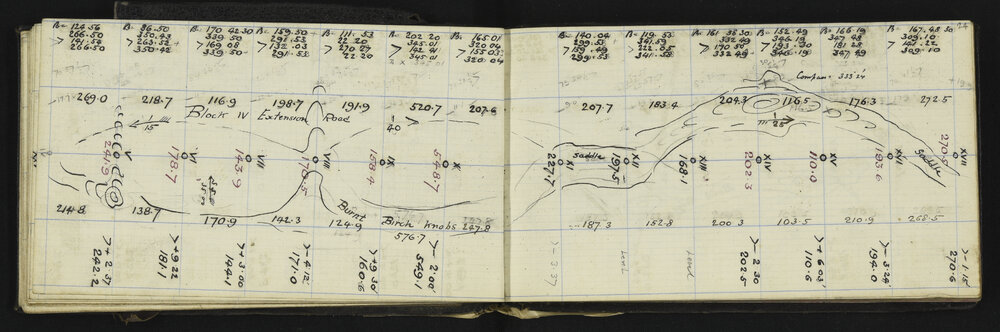 B= 124.56
266.50
> 141.56
266.50
B= 86.50
350.43
> 263.52
350.42
B= 170 42 30
339 50
> 169 08
339 50
B= 159.30
291.53
> 132.03
291.53
B= 111.53
22.20
> 270 27
22 20
B= 202 20
345.01
> 142 41
345 01
B= 165 01
320 04
> 155 03
320 04
269.0 218.7 116.9 198.7 191.9 520.7 207.6
Block IV Extension Road
1/15
1/40
V VI VII VIII IX X
241.9 178.7 143.9 178.5 158.4 548.7
214.8 138.7 170.9 142.3 124.9 576.7 247.8
Burnt Birch Knobs
>+ 2.37
242.2
>+ 9 22
181.1
>+ 3.00
144.1
>- 4.12
171.0
>+ 9.30
160.6
>- 2.00
549.1
24
B= 140.04
299.53
> 159.49
299.53
B= 119.53
341.59
> 222.05
341.58
B= 161 38 30
332 49
> 170 56
332 49
B= 152.49
346.19
> 193.30
346.19
B= 166 19
347 48
> 181 28
347 49
B= 167.48 30
309.10
> 141.22
309.10
Compass 335 24
207.7 183.4 204.3 116.5 176.3 272.5
1/25
Saddle
Saddle
XI XII XIII XIV XV XVI XVII
227.7 197.5 168.1 202.3 110.0 193.6 270.5
187.3 152.8 200 3 103.5 210.9 268.5
> - 3.37
Level
Level
>- 2 30
202.5
>+ 6 03
110.6
>- 3.24
194.0
>- 1.15
270.6